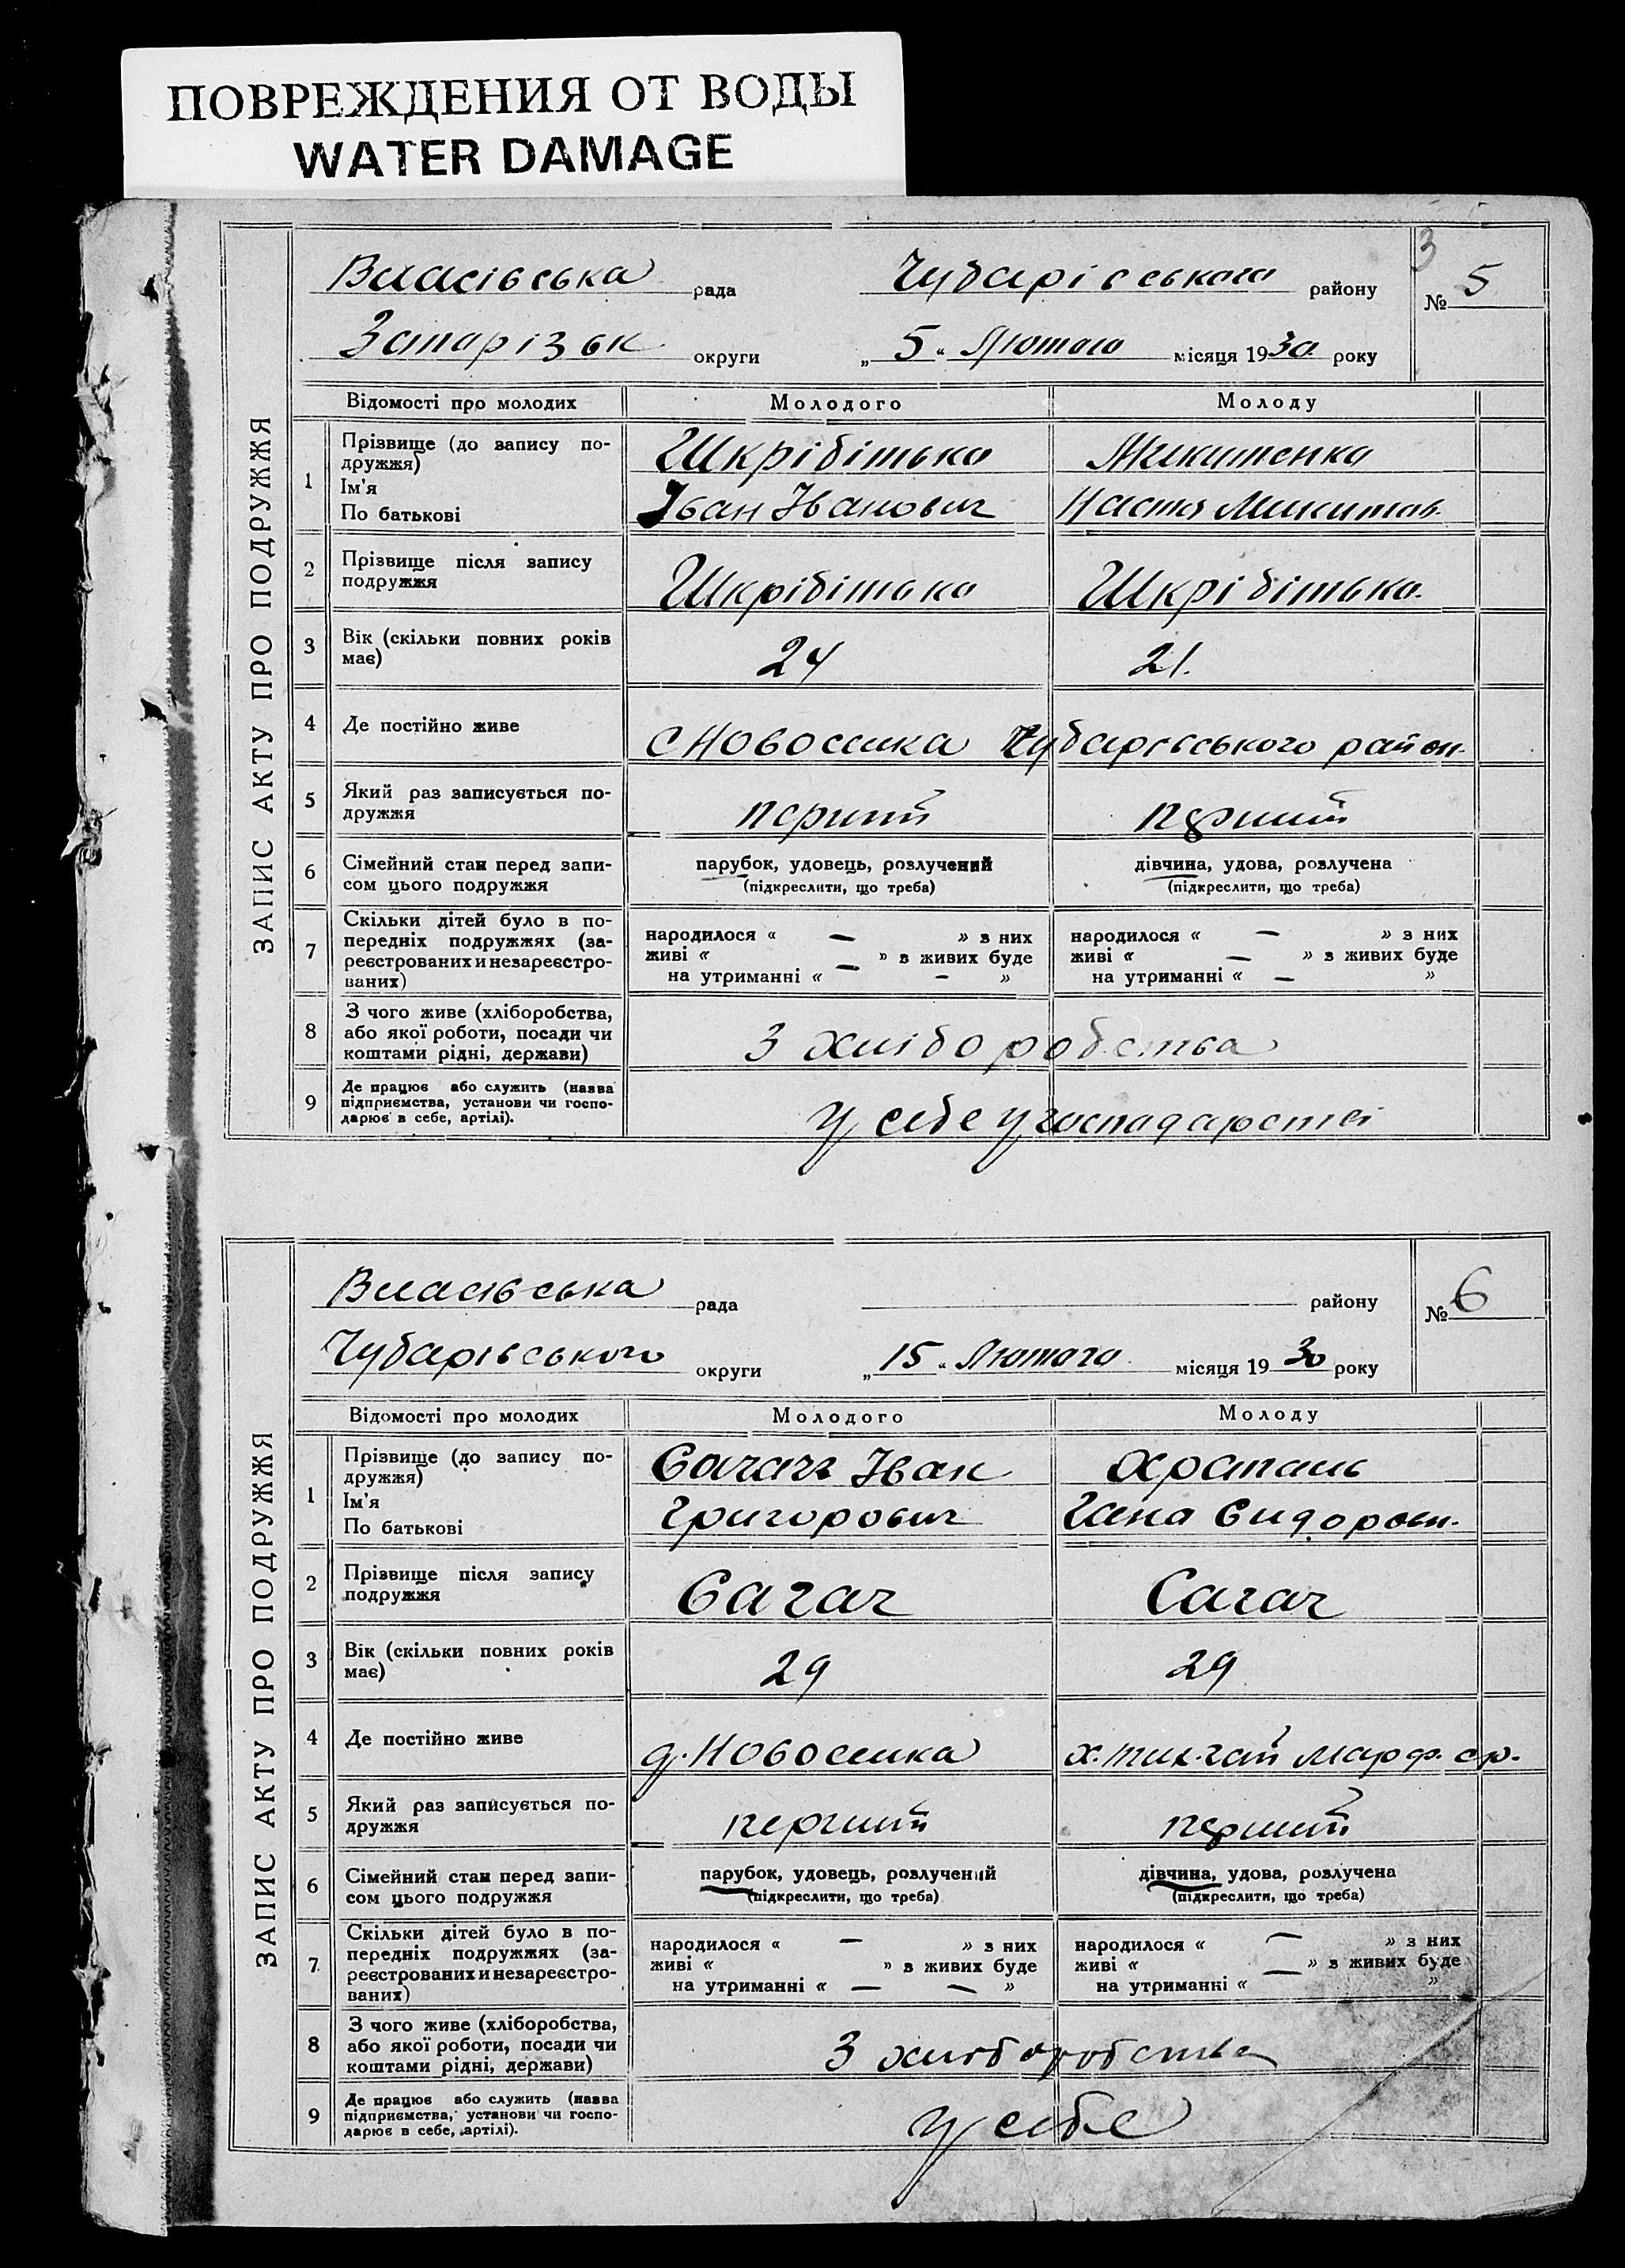 ПОВРЕЖДЕНИЯ ОТ ВОДЫ
WATER DAMAGE
3
Власівська рада Чубарівського району № 5
Запорізьк округи „5“ Лютого місяця 1930 року
ЗАПИС АКТУ ПРО ПОДРУЖЖЯ
Відомості про молодих Молодого Молоду
1 Прізвище (до запису по-
дружжя) Шкрібітько Микитенко
Ім'я
По батькові Іван Іванович Настя Микитов.
2 Прізвище після запису
подружжя Шкрібітько Шкрібітько.
3 Вік (скільки повних років
має) 24 21.
4 Де постійно живе с Новоселка Чубарівського район.
5 Який раз записується по-
дружжя перший перший
6 Сімейний стан перед запи- парубок, удовець, розлучений дівчина, удова, розлучена
сом цього подружжя (підкреслити, що треба) (підкреслити, що треба)
7 Скільки дітей було в по-
передніх подружжях (за- народилося « — » з них народилося « — » з них
реєстрованих и незареєстро- живі « — » в живих буде живі « — » в живих буде
ваних) на утриманні « — » на утриманні « — »
8 З чого живе (хліборобства,
або якої роботи, посади чи
коштами рідні, держави) З хліборобства
9 Де працює або служить (назва
підприємства, установи чи госпо-
дарює в себе, артілі). у себе у господарстві
Власівська рада району № 6
Чубарівського округи „15“ Лютого місяця 1930 року
ЗАПИС АКТУ ПРО ПОДРУЖЖЯ
Відомості про молодих Молодого Молоду
1 Прізвище (до запису по-
дружжя) Сагач Іван Храпаць
Ім'я
По батькові Григорович Гана Сидоровн.
2 Прізвище після запису
подружжя Сагач Сагач
3 Вік (скільки повних років
має) 29 29
4 Де постійно живе д. Новоселка х. гай Марф. ср.
5 Який раз записується по-
дружжя перший перший
6 Сімейний стан перед запи- парубок, удовець, розлучений дівчина, удова, розлучена
сом цього подружжя (підкреслити, що треба) (підкреслити, що треба)
7 Скільки дітей було в по-
передніх подружжях (за- народилося « — » з них народилося « — » з них
реєстрованих и незареєстро- живі « » в живих буде живі « — » в живих буде
ваних) на утриманні « — — » на утриманні « »
8 З чого живе (хліборобства,
або якої роботи, посади чи
коштами рідні, держави) З хліборобства
9 Де працює або служить (назва
підприємства, установи чи госпо-
дарює в себе, артілі). у себе